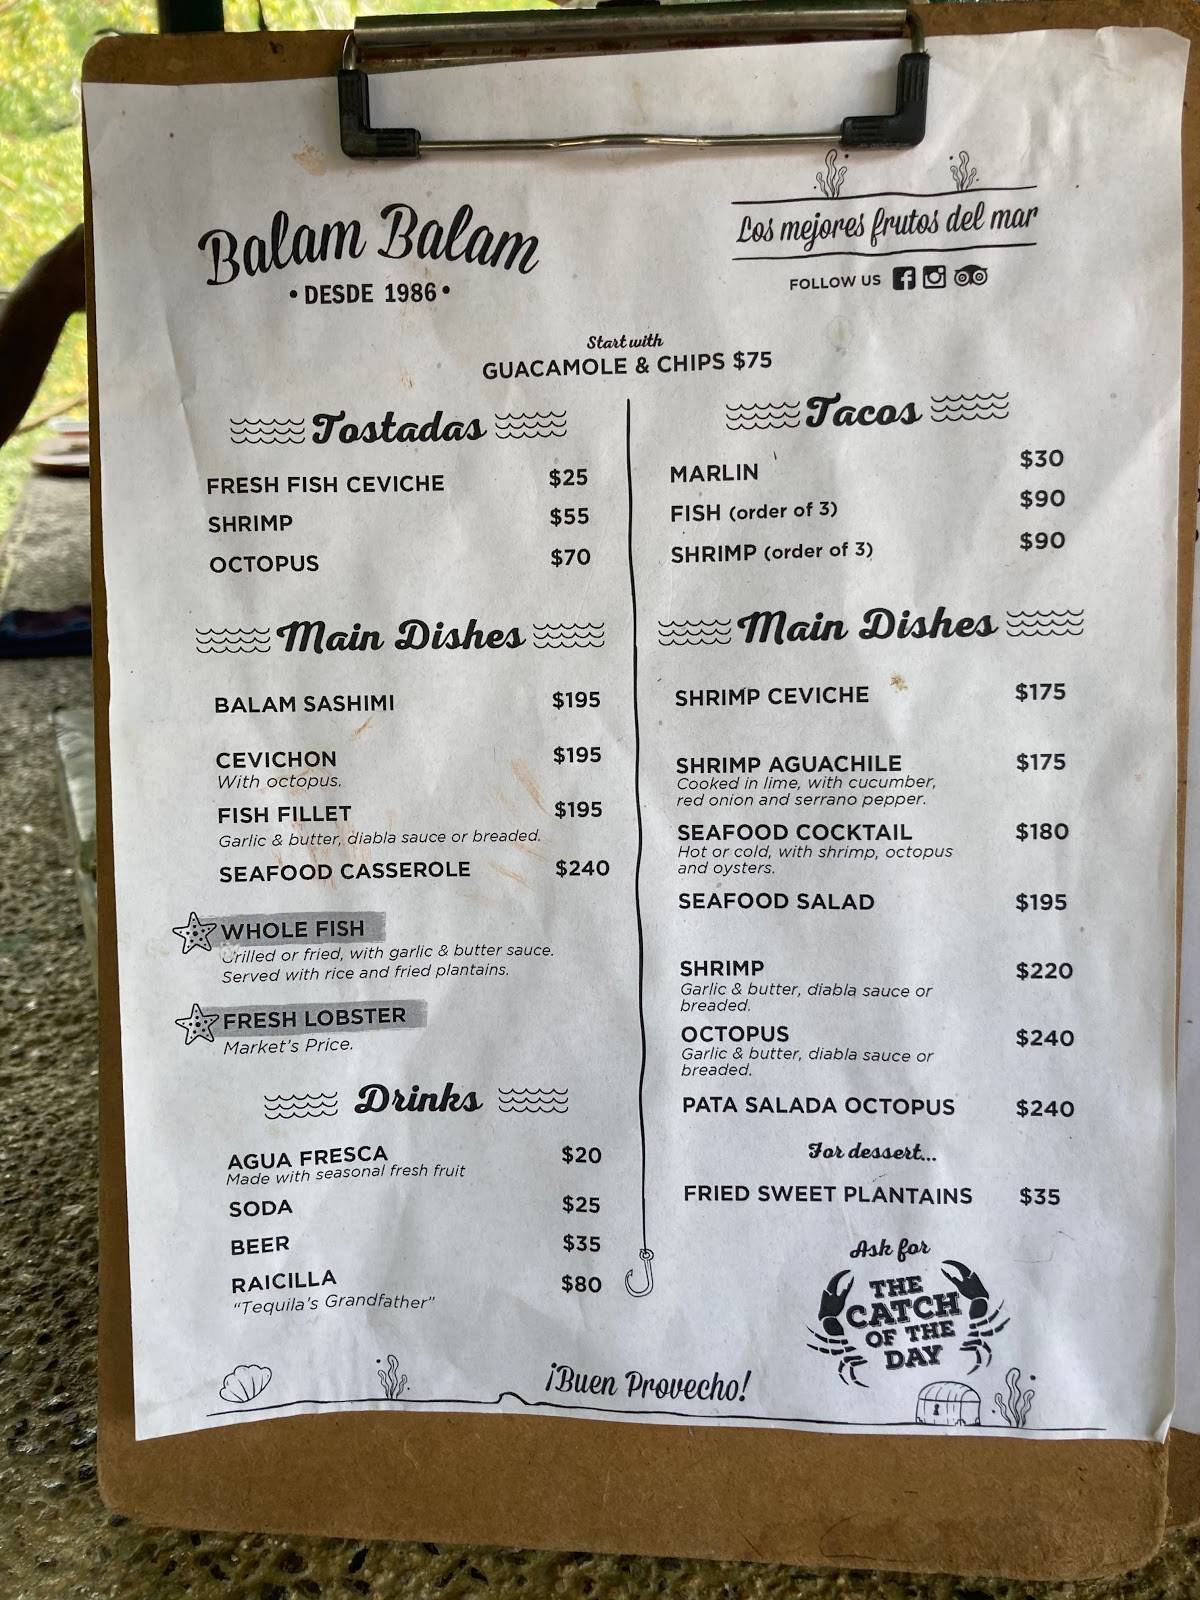 Balam Balam
• DESDE 1986 •
Los mejores frutos del mar
FOLLOW US
Start with
GUACAMOLE & CHIPS $75
Tostadas
FRESH FISH CEVICHE $25
SHRIMP $55
OCTOPUS $70
Main Dishes
BALAM SASHIMI $195
CEVICHON $195
With octopus.
FISH FILLET $195
Garlic & butter, diabla sauce or breaded.
SEAFOOD CASSEROLE $240
WHOLE FISH
Grilled or fried, with garlic & butter sauce.
Served with rice and fried plantains.
FRESH LOBSTER
Market's Price.
Drinks
AGUA FRESCA $20
Made with seasonal fresh fruit
SODA $25
BEER $35
RAICILLA $80
"Tequila's Grandfather"
Tacos
MARLIN $30
FISH (order of 3) $90
SHRIMP (order of 3) $90
Main Dishes
SHRIMP CEVICHE $175
SHRIMP AGUACHILE $175
Cooked in lime, with cucumber,
red onion and serrano pepper.
SEAFOOD COCKTAIL $180
Hot or cold, with shrimp, octopus
and oysters.
SEAFOOD SALAD $195
SHRIMP $220
Garlic & butter, diabla sauce or
breaded.
OCTOPUS $240
Garlic & butter, diabla sauce or
breaded.
PATA SALADA OCTOPUS $240
For dessert...
FRIED SWEET PLANTAINS $35
Ask for
THE
CATCH
OF THE
DAY
¡Buen Provecho!